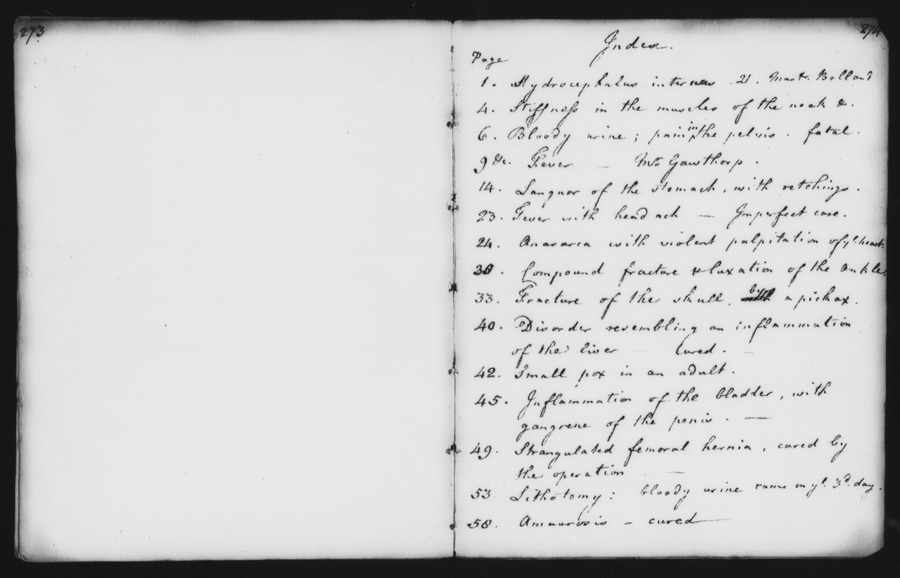 273
274
Index.
Page
1. Hydrocephalus internus 21. Mastr. Bolland
4. Stiffness in the muscles of the neck &c.
6. Bloody urine; pain in the pelvis. fatal.
9 &c. Fever — Mr Gawthorp.
14. Languor of the stomach, with retchings.
23. Fever with head ach — Imperfect case.
24. Anasarca with violent palpitation of ye heart.
30. Compound fracture & luxation of the ankle
33. Fracture of the skull, by a pickax.
40. Disorder resembling an inflammation
of the liver — Cured. —
42. Small pox in an adult.
45. Inflammation of the bladder, with
gangrene of the penis. —
49. Strangulated femoral hernia, cured by
the operation —
53. Lithotomy: bloody urine came on ye 3d. day.
58. Amaurosis — cured —